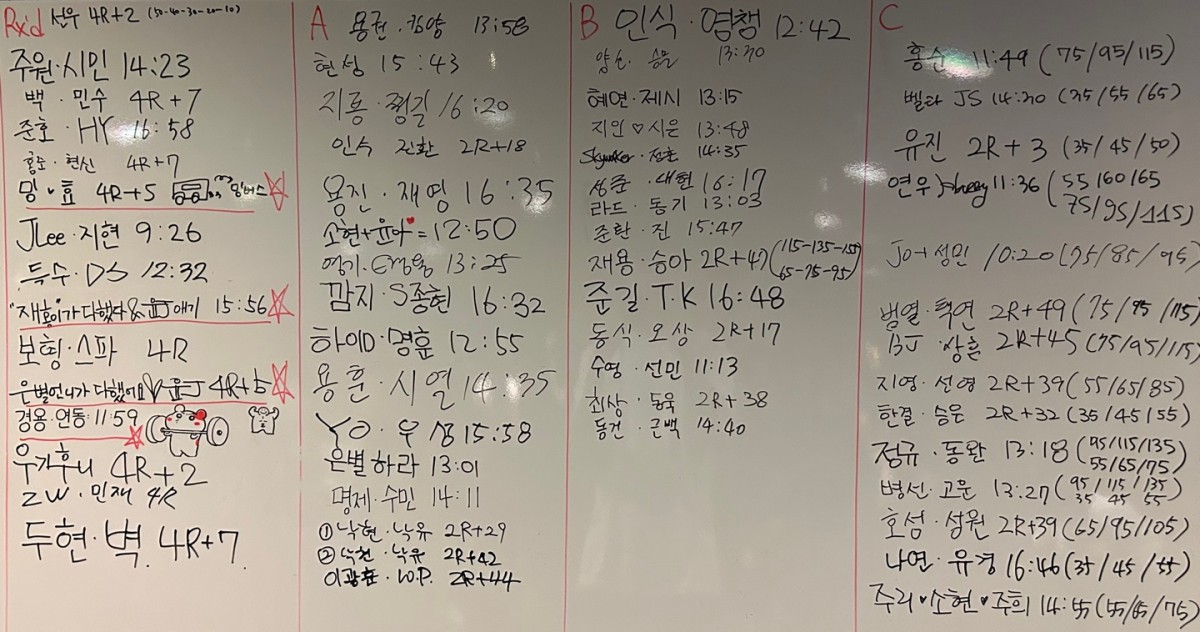 Rx'd 선우 4R+2 (50-40-30-20-10)
주원·시민 14:23
백·민수 4R+7
준호·HY 16:58
홍도·현신 4R+7
밍·효 4R+5
JLee·지현 9:26
득수·DS 12:32
"재홍이가 다했다 얘기 15:56
보형·스파 4R
은별언니가 다했어요 4R+
경용·연동 11:59
우가후니 4R+2
ZW·민재 4R
두현·벽 4R+7
A 용권· 13:58
현성 15:43
지용·평길 16:20
인수 진환 2R+18
용진·재영 16:35
소현+윤아=12:50
영기· 13:25
깜지·S종현 16:32
하이D·명훈 12:55
용훈·시열 14:35
YO·우성 15:58
은별하라 13:01
명제·수민 14:11
① 낙현·낙유 2R+29
② 낙천·낙유 2R+42
이광표·W.P. 2R+44
B 인식·영챙 12:42
13:30
혜연·제시 13:15
지인♡시은 13:48
14:35
성준·대현 16:17
라드·동기 13:03
준환·진 15:47
재용·승아 2R+47 (115-135-155
65-75-95)
준길·T.K 16:48
동식·오상 2R+17
수영·선민 11:13
최상·동욱 2R+38
동건·근백 14:40
C
홍순 11:49 (75/95/115)
벨라 JS 14:30 (35/55/65)
유진 2R+3 (35/45/50)
연우 11:36 (55/60/65
75/95/115)
Jo·성민 10:20 (75/85/95)
범열·택연 2R+49 (75/95/115)
BJ·상훈 2R+45 (75/95/115)
지영·선영 2R+39 (55/65/85)
한결·승윤 2R+32 (35/45/55)
정규·동완 13:18 (95/115/135
55/65/75)
병선·고운 13:27 (95/115/135
35 45 55)
호성·성원 2R+39 (65/95/105)
나연·유경 16:46 (35/45/55)
주리♥소현♥주희 14:55 (55/65/75)